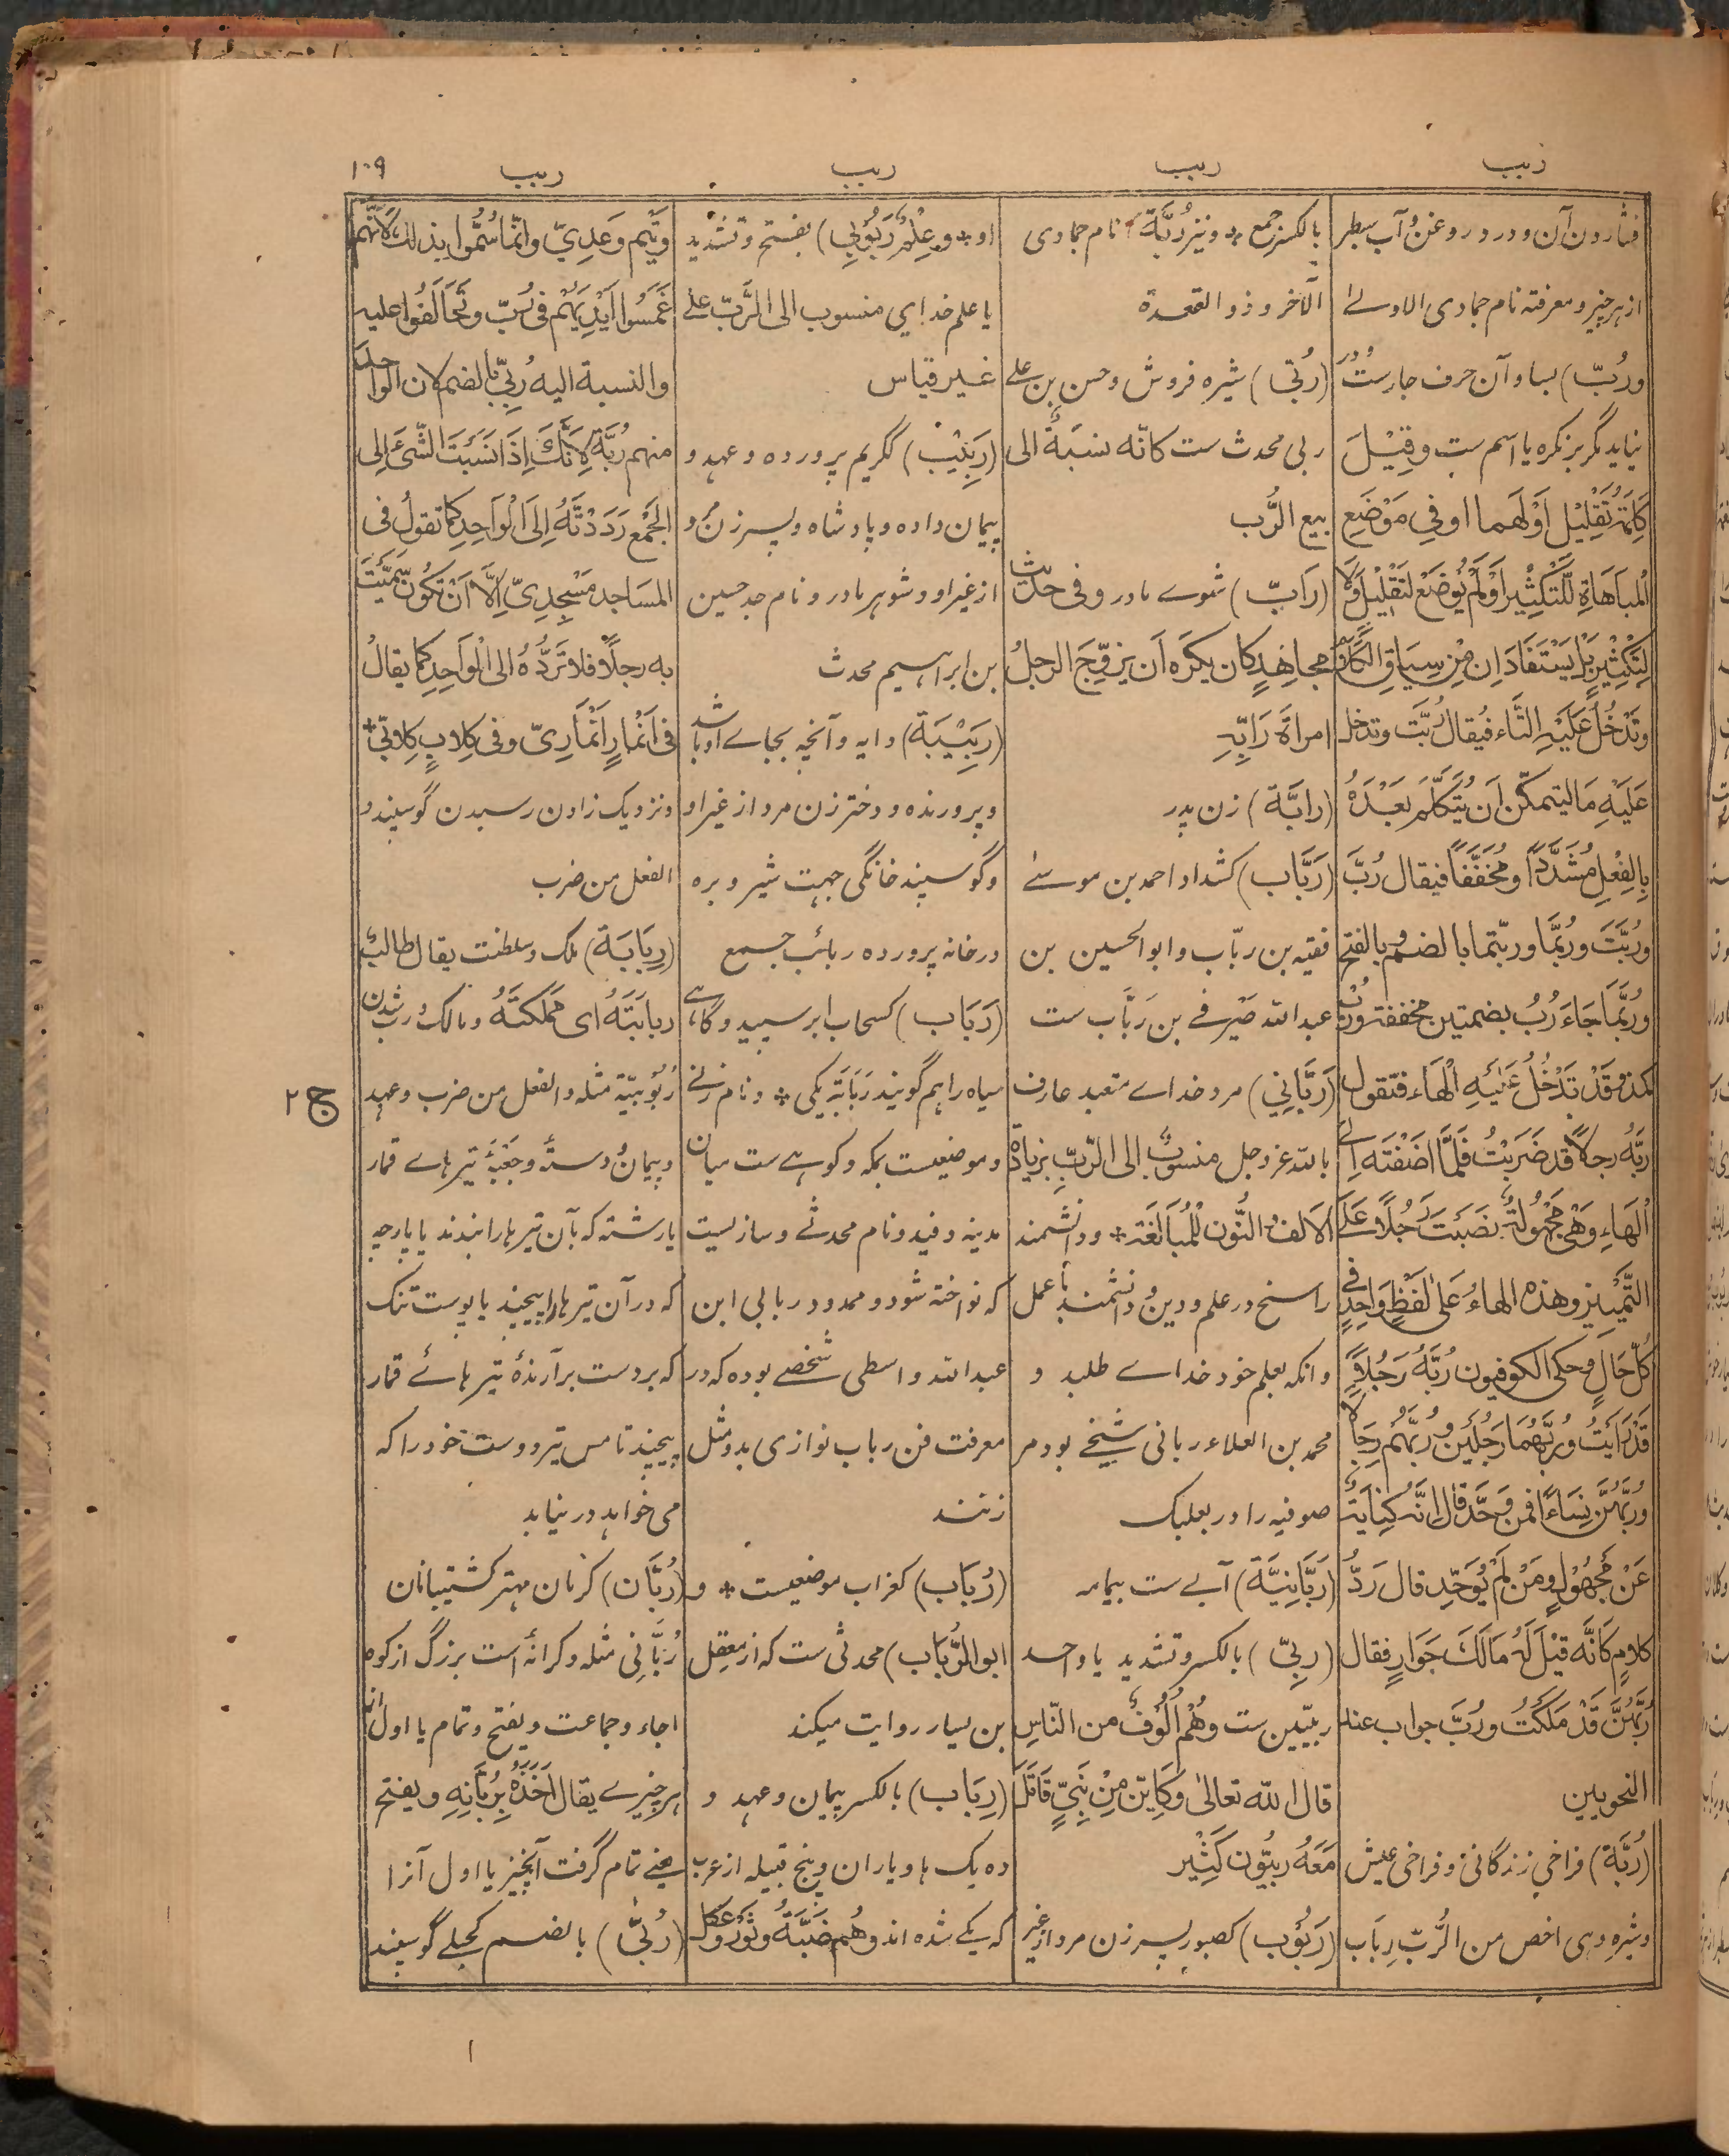 ربب
ربب
ربب
ربب
۱۰۹
فشاردن آن و درد روغن و آب سطبر
از هر چیز و معرفته نام جمادی الاولے
ورُبّ) بسا و آن حرف جارست و در
نیاید مگر بر نکره یا اسم ست وقِیْلَ
كَلِمَةُ تَقْلِيْل اَوْ لَهما او فِي مَوْضَعِ
اْلمبَاهَاةِ لِلتَّكْثِيْر اَوْلَمْ يُوْضَعْ لتَقْلِيْل وَلَا
لِتَكْثِيْرٍ بَلْ يَسْتَفَادَانِ مِنْ سِيَاقِ الكَلَامِ
وتَدْخُلُ عَلَيْهِ التَّاء فيُقالُ رُبَّت وتدخل
عَلَيْهِ مَا ليتمكّن اَن يُتَكَلَّمَ بَعْدَهُ
بِالفِعْلِ مُشَدَّدًا ومُخَفَّفًا فيقال رُبَّ
ورُبَّتَ ورُبَّما وربّتما بالضم وبالفتح
ورُبَّما جَاءَ رُبُ بضمتين مخففة ورُبْ
كمذ وقَدْ تَدْخُلُ عَلَيْهِ الْهَاء فتقول
ربَّهُ رجلاً قد ضَرَبْتُ فَلَمَّا اَضَفْتَه اِلى
الهَاءِ وَهِيَ مَجْهُولَةٌ نصَبْتَ رَجُلًا عَلَى
التَّمْيِيْزِ وهذه الهاءُ عَلى لَفْظٍ وَاحِدٍ في
كُلِّ حَالٍ وحكى الكوفيون رُبَّهُ رَجُلًا
قَدْ رَأيْتُ ورُبَّهُمَا رَجُلَيْنِ ورُبَّهُمْ رِجَالًا
ورُبَّهُنَّ نِسَاءً فمن وَحَّدَ قال انَّه كِنَايَةٌ
عَنْ مَجْهُوْلٍ ومَنْ لَمْ يُوَحِّد قال رَدُّ
كلامٍ كَانَّه قِيْلَ لَهُ مَالَكَ جَوَارٍ فقال
رُبَّهُنَّ قَدْ مَلَكْتُ ورُبَّ جواب عند
النحویین
(رُبَّة) فراخی زندگانی و فراخی عیش
وشیره وهی اخص من الرُّبّ رِبَاب
بالکسر جمع * و نیز رُبَّة نام جمادی
الآخر و ذو القعدة
(رُبّی) شیره فروش و حسن بن علی
ربی محدث ست کانّه نسبَةٌ الی
بیع الرُّب
(رَابّ) شوے مادر وفی حدیث
مجاهدٍ كان يكرَه اَن يزوِّجَ الرجلُ
امرأةَ رَابِّهِ
(رابَّة) زن پدر
(رَبَّاب) کشداد احمد بن موسےٰ
فقیه بن ربّاب و ابو الحسین بن
عبدالله صَیْرفے بن رَبَّاب ست
(رَبَّانِي) مرد خداے متعبد عارف
بالله عزوجل منسوبٌ الی الرّبّ بزیادة
الالف والنُّون لِلْمُبَالَغَة * ودانشمند
راسخ در علم و دین و دانشمند با عمل
وانکه بعلم خود خداے طلبد و
محمد بن العلاء ربانی شیخے بود مر
صوفیه را در بعلبک
(رَبَّانِيَّة) آبے ست بیمامه
(رِبِّيّ) بالکسر و تشدید یا واحد
ربیّین ست وهُمْ اُلُوْفٌ من النّاسِ
قال الله تعالىٰ وكَاَيِّن مِنْ نَبِيٍّ قَاتَلَ
مَعَهُ رِبِّيُّون كَثِيْر
(رَبُوْب) کصبور پسر زن مرد از غیر
او * و عِلْمٌ رَبُوْبِي) بفتح و تشدید
یا علم خدایی منسوب الی الرَّبّ علی
غیر قیاس
(رَبِيْب) کگریم پرورده و عهد و
پیمان داده و پادشاه و پسر زن و
از غیر او و شوهر مادر و نام جد حسین
بن ابراهیم محدث
(رَبِيْبَة) دایه و آنچه بجاے او باشد
وپرورنده و دختر زن مرد از غیر او
وگوسپند خانگی جهت شیر و بره
در خانه پرورده ربائب جمع
(رَبَاب) کسحاب ابر سپید و گاہے
سیاه را هم گویند رَبَابَة یکی * و نام زنے
وموضعیست بمکه و کوہے ست میان
مدینه و فید و نام محدثے و سازیست
که نواخته شود و ممدود ربابی ابن
عبدالله واسطی شخصے بوده که در
معرفت فن رباب نوازی بدو مثل
زنند
(رُبَاب) کغراب موضعیست * و
ابو الرُّبَاب) محدثی ست که از معقِل
بن یسار روایت میکند
(رِبَاب) بالکسر پیمان و عهد و
ده یک ها و یاران و پنج قبیله از عرب
که یکے شده اند وهُم ضَبَّةُ وثَوْر وعُكل
وتَيم وعَدِيّ وانّما سُمُّوا بذلك لاَنَّهم
غَمَسُوا اَيْدِيَهُم في رُبّ وتَحَالَفُوا عليه
والنسبة اليه رُبِّيّ بالضم لان الواحد
منهم رُبَّة لِاَنَّكَ اِذَا نَسَبْتَ الشَّيْءَ اِلى
الْجَمْع رَدَدْتَّهُ اِلى الْوَاحِدِ كما تقولُ فى
المسَاجد مَسْجِدِيّ اِلَّا اَنْ تكُونَ سَمَّيْتَ
به رجلاً فلا تَرُدُّهُ الى الْوَاحِدِ كما يقالُ
في اَنْمَارٍ اَنْمَارِيّ وفى كِلابٍ كِلابيّ *
ونزدیک زادن رسیدن گوسپند و
الفعل من ضرب
(رِبَابَة) ملک و سلطنت یقال طالتْ
ربابَتَهُ اى مَمْلَكَتَهُ ومالک و رب شدن
رُبُوْبِيَّة مثله والفعل من ضرب و عهد
وپیمان و دستهٔ وجَعْبَهٔ تیرهاے قمار
یا رشته که بآن تیرها را بندند یا پارچه
که در آن تیرها را پیچند یا پوست تنک
که بر دست برآرندهٔ تیرهائے قمار
پیچند تا مس تیر و دست خود را که
می خواهد در نیابد
(رُبَّان) کرمان مهتر کشتیبانان
رُبَّانِي مثله و کرانهٔ است بزرگ از کوه
اجاء و جماعت و یفتح و تمام یا اول از
هر چیزے یقال اَخَذَهُ بِرُبَّانِهِ و یفتح
یعنے تمام گرفت آنچیز یا اول آنرا
(رُبّٰى) بالضم کحبلے گوسپند
ج ۲